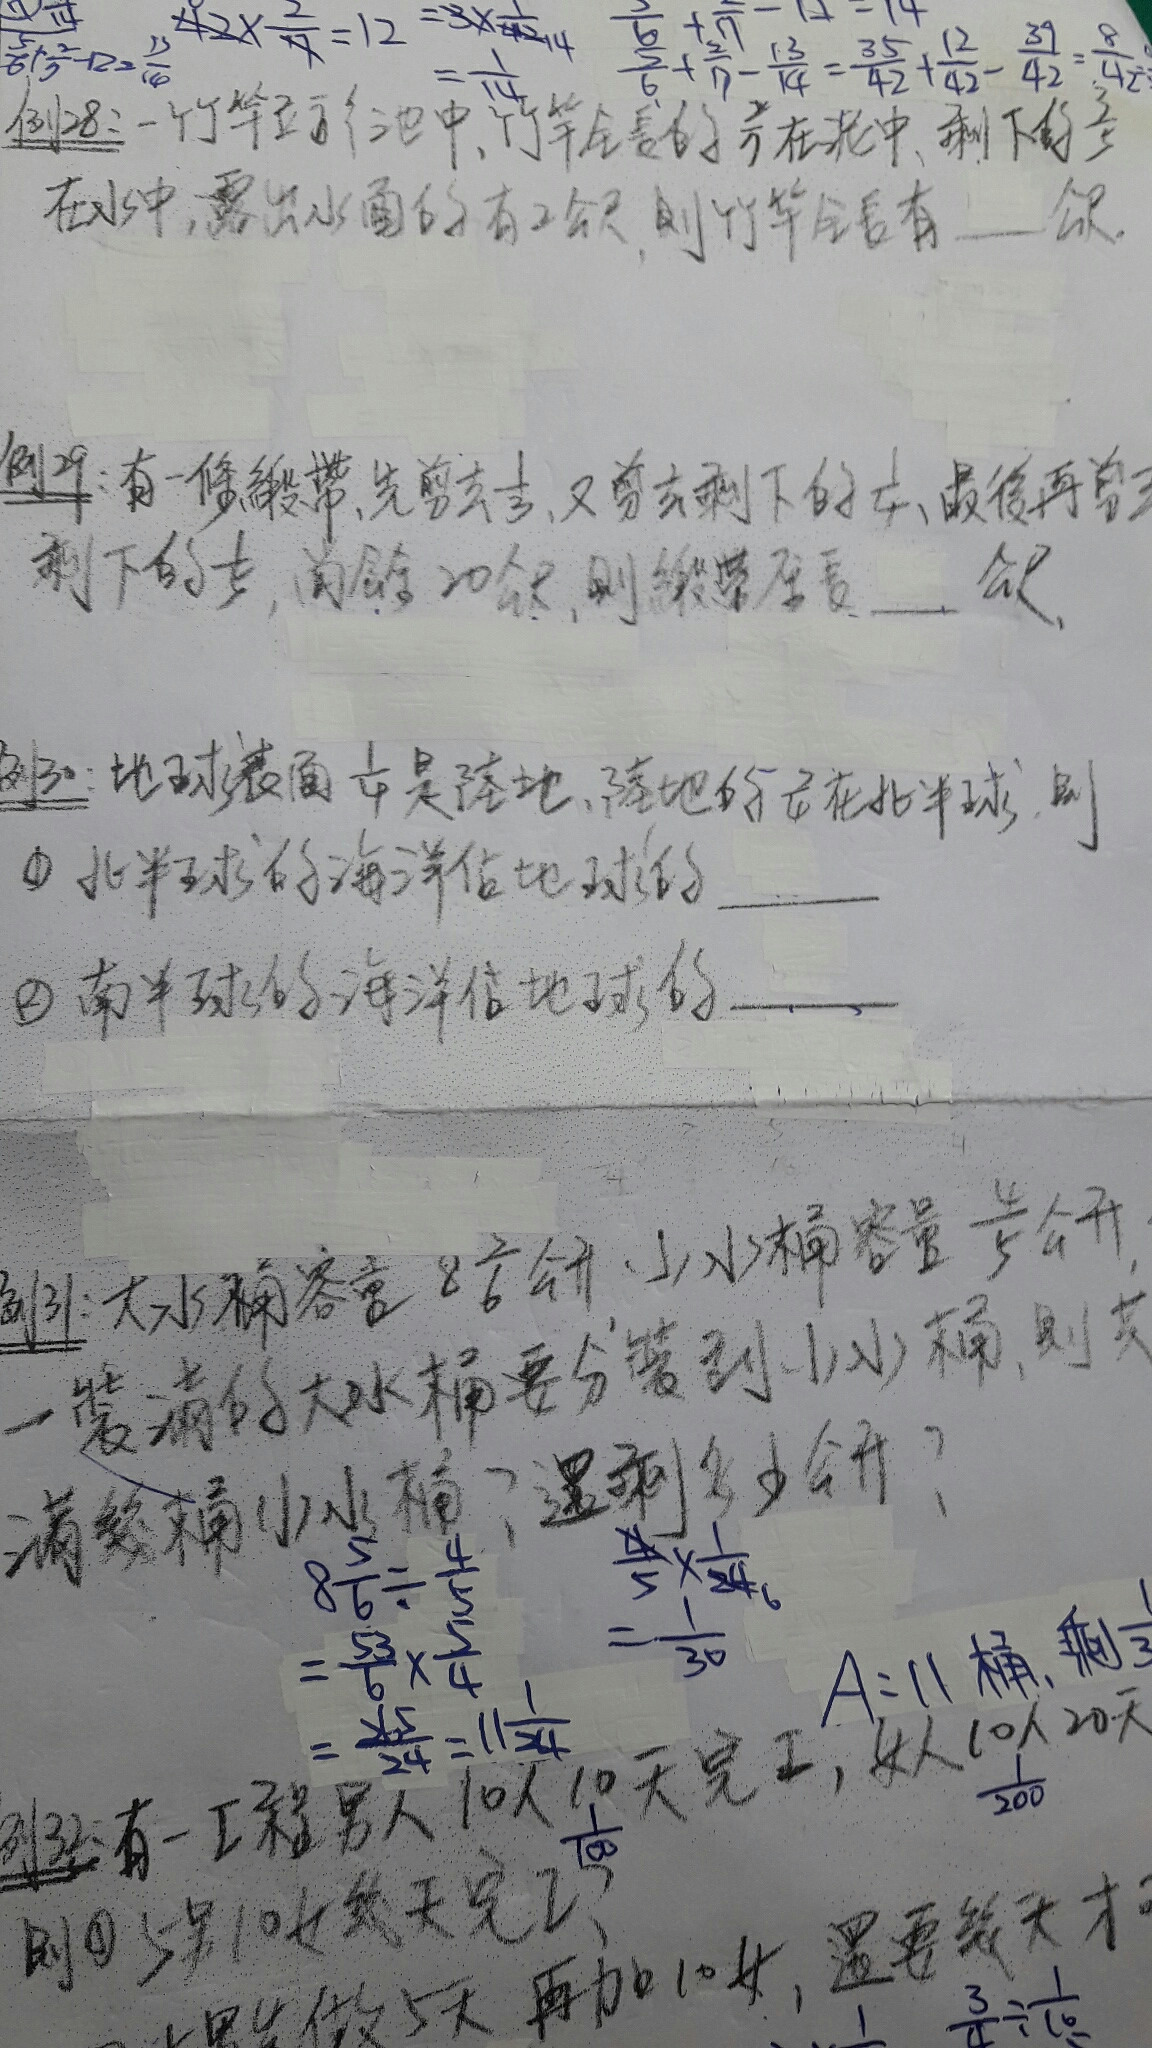 42×2/7=12
=3×1/42 14
=1/14
5/6+2/7-13/14=35/42+12/42-39/42=8/42
例28:一竹竿立直於池中,竹竿全長的 在泥中,剩下的
在水中,露出水面的有2公尺,則竹竿全長有___公尺.
例29:有一條緞帶,先剪去,又剪去剩下的,最後再剪去
剩下的,尚餘20公尺,則緞帶原長___公尺.
例30:地球表面1/4是陸地,陸地的 在北半球,則
① 北半球的海洋佔地球的___
② 南半球的海洋佔地球的___
例31:大水桶容量 8 5/6公升,小水桶容量 4/5公升,
一裝滿的大水桶要分裝到小水桶,則共
滿幾桶小水桶?還剩多少公升?
8 5/6÷4/5
=53/6×5/4
=265/24=11 1/24
4/5×1/24 6
=1/30
A=11桶,剩1/3
例32:有一工程男人10人10天完工,女人10人20天
1/100
1/200
則①5男10女幾天完工?
男先做5天再加10女,還要幾天才
3/4÷1/10